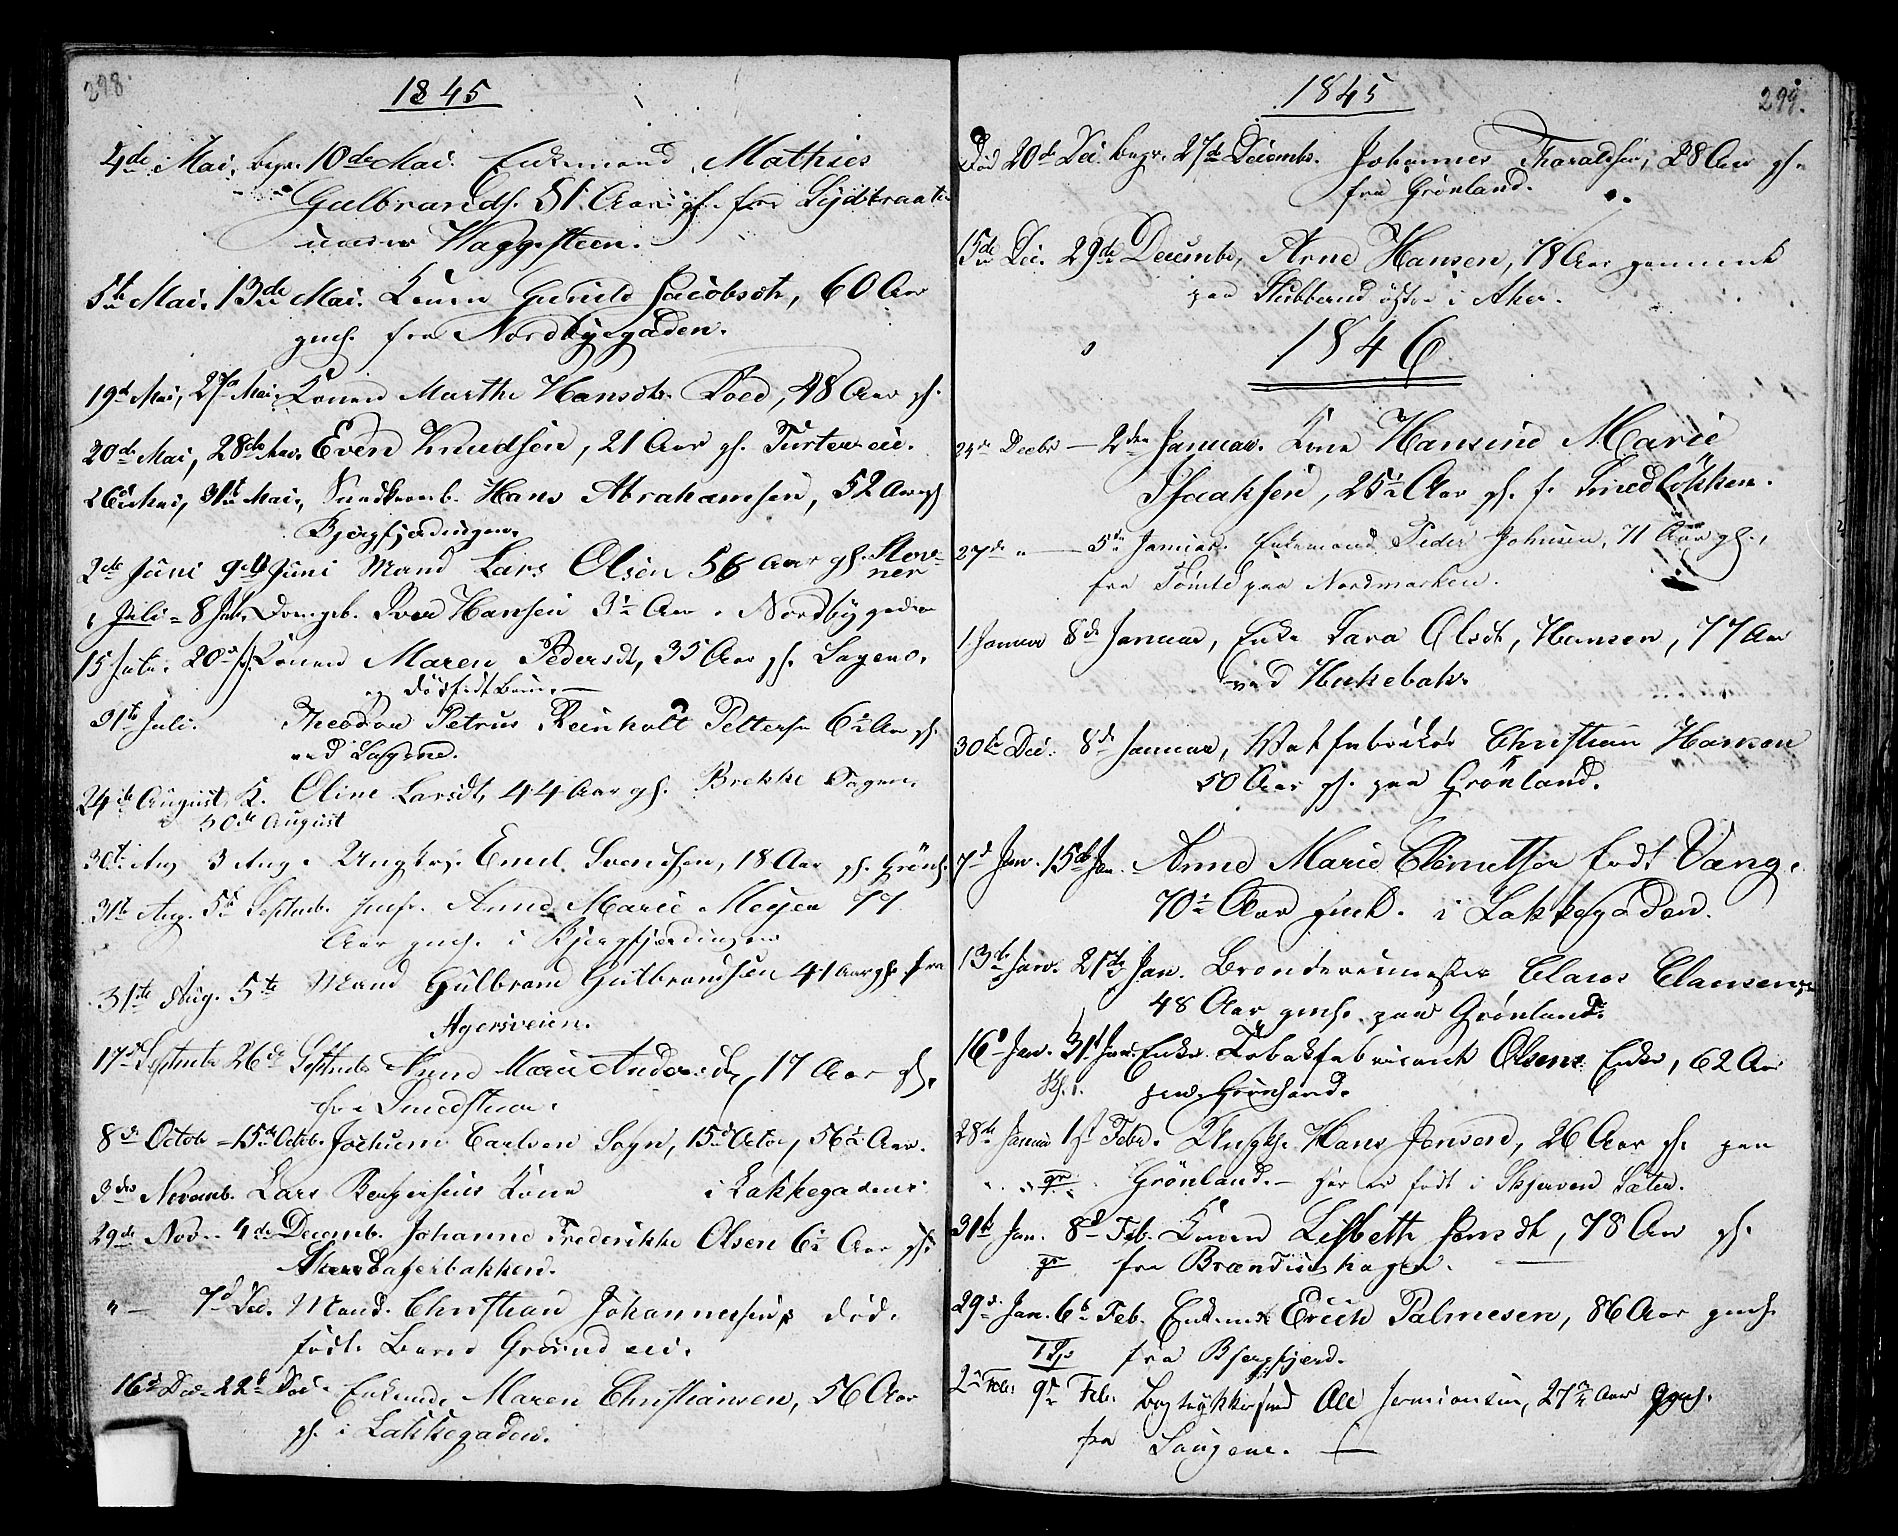 298.
1845
4de Mai, begr. 10de Mai. Enkemand Mathies
Gulbrands. 51 Aar gl. fra
under Waggesteen.
5te Mai. 13de Mai. Konen Gunild Jacobsdtr, 60 Aar
gml. fra Nordbygaden.
19de Mai, 27de Mai, Konen Marthe Hansdtr. Roed, 48 Aar gl.
20de Mai, 28de Mai. Even Knudsen, 21 Aar gl.
26de Mai, 31te Mai, Hans Abrahamsen, 52 Aar gl
Bjergfjerdingen.
2de Juni 9de Juni Mand Lars Olsen 56 Aar gl.
1 Juli = 8 Juli. Drengeb. Iver Hansen 3½ Aar. Nordbygaden
15 Juli. 20de Jul. Konen Maren Pedersdt, 35 Aar gl. Sagene.
og dödfödt Barn. —
31te Juli. Theodor Petrus Reinholt Pettersen 6½ Aar gl.
ved Sagene.
24de August, K. Oline Larsdt, 44 Aar gl. Brekke Sagen.
30de August
30te Aug 3 Aug. Ungkrl. Emil Svendsen, 18 Aar gl. Grönl.
31te Aug. 5te Septemb. Jmfr. Anne Marie Meyer 77
Aar gml. i Bjergfjerdingen
31te Aug. 5te Mand Gulbrand Gulbrandsen 41 Aar gl. fra
Agersveien.
17de Septembr 26de Septembr Anne Marie Andersdtr, 17 Aar gl.
fra Smedstuen.
8de Octob = 15de Octob. Jochum Carlsen Sogn, 15de Octbr, 56½ Aar.
3die Novemb. Lars Kone i Lakkegaden
29de Nov. - 4de Decemb. Johanne Frederikke Olsen 6½ Aar gl.
" — 7de Dec. Mand. Christian Johannessens död-
födte Barn
16de Dec. 22de Dec. Enkende Maren Christiansen, 56 Aar
gl. i Lakkegaden.
299.
1845
Död 20de Dec. begr. 27de Decemb. Johannes Haraldsen, 28 Aar gl.
fra Grönland.
15de Dec. 29de Decembr, Arne Hansen, 78 Aar gammel
paa Stubberud östre i Aker.
1846
24de Decbr — 2den Januar. Kone Hansine Marie
Isaaksen, 25½ Aar gl. f. Smedlökken.
27de " — 5de Januar. Enkemand Peder Johnsen, 71 Aar gl.,
fra Tömte paa Nordmarken.
1 Januar 8de Januar, Enke Sara Olsdt, Hansen, 77 Aar
ved Hukebak.
30te Dec. 8de Januar, Vatfabrikör Christian Hansen
50 Aar gl. paa Grönland.
7de Jan. 15de Jan. Anne Marie Clemetsen födt Vang.
70½ Aar gml. i Lakkegaden.
13de Jan. 21de Jan. Claus Clausen
48 Aar gml. paa Grönland.
16de Jan. 31te Jan. Enke. Tobakfabricant Olsens Enke, 62 Aar
paa Grönland.
28de Januar 1ste Febr. Ungk. Hans Jensen, 26 Aar gl. paa
Grönland. — han er födt i
31te Jan. 8de Feb. Konen Lisbeth Jensdt, 78 Aar gl.
fra Brandtishagen.
29de Jan. 6te Feb. Enkem. Erich Palmesen, 86 Aar gml.
fra Bjergfjerd.
2de Feb. 9de Feb. Bogtrykkersvend Ole 27¾ Aar gml.
fra Saugene.